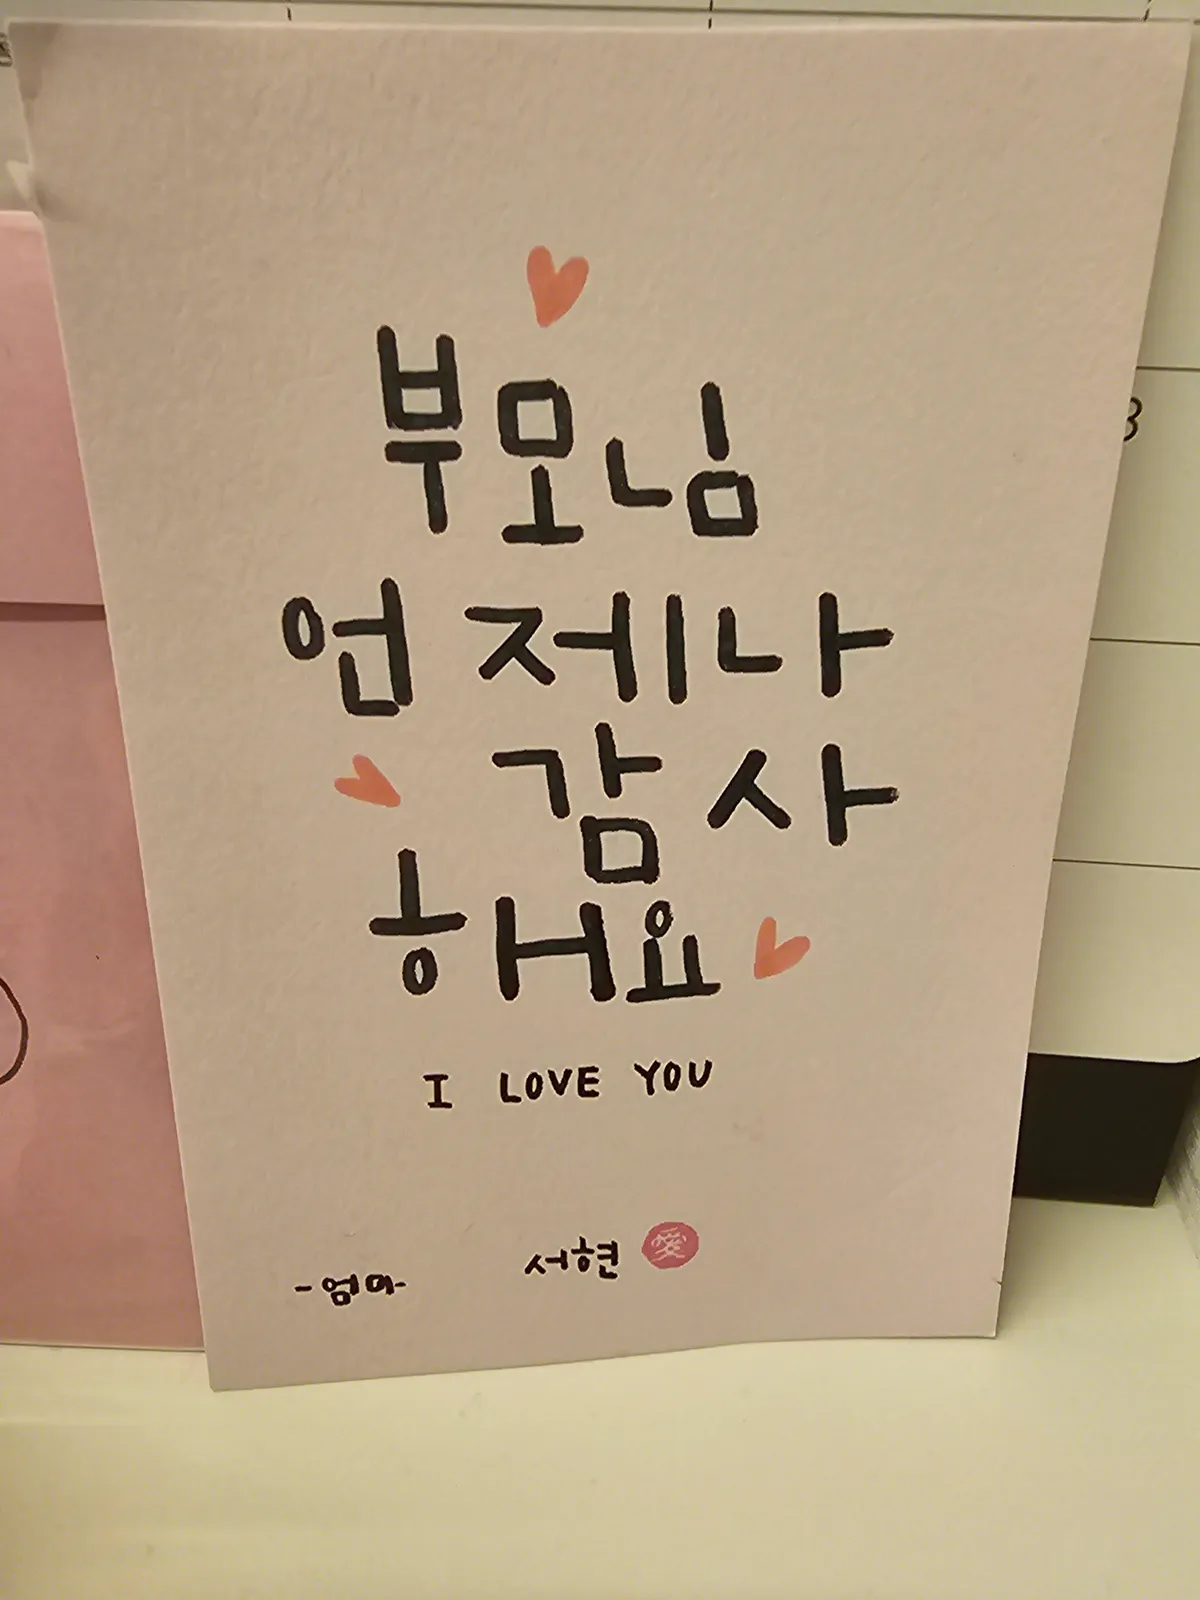 부모님
언제나
감사
해요
I LOVE YOU
서현 愛
-엄마-
3